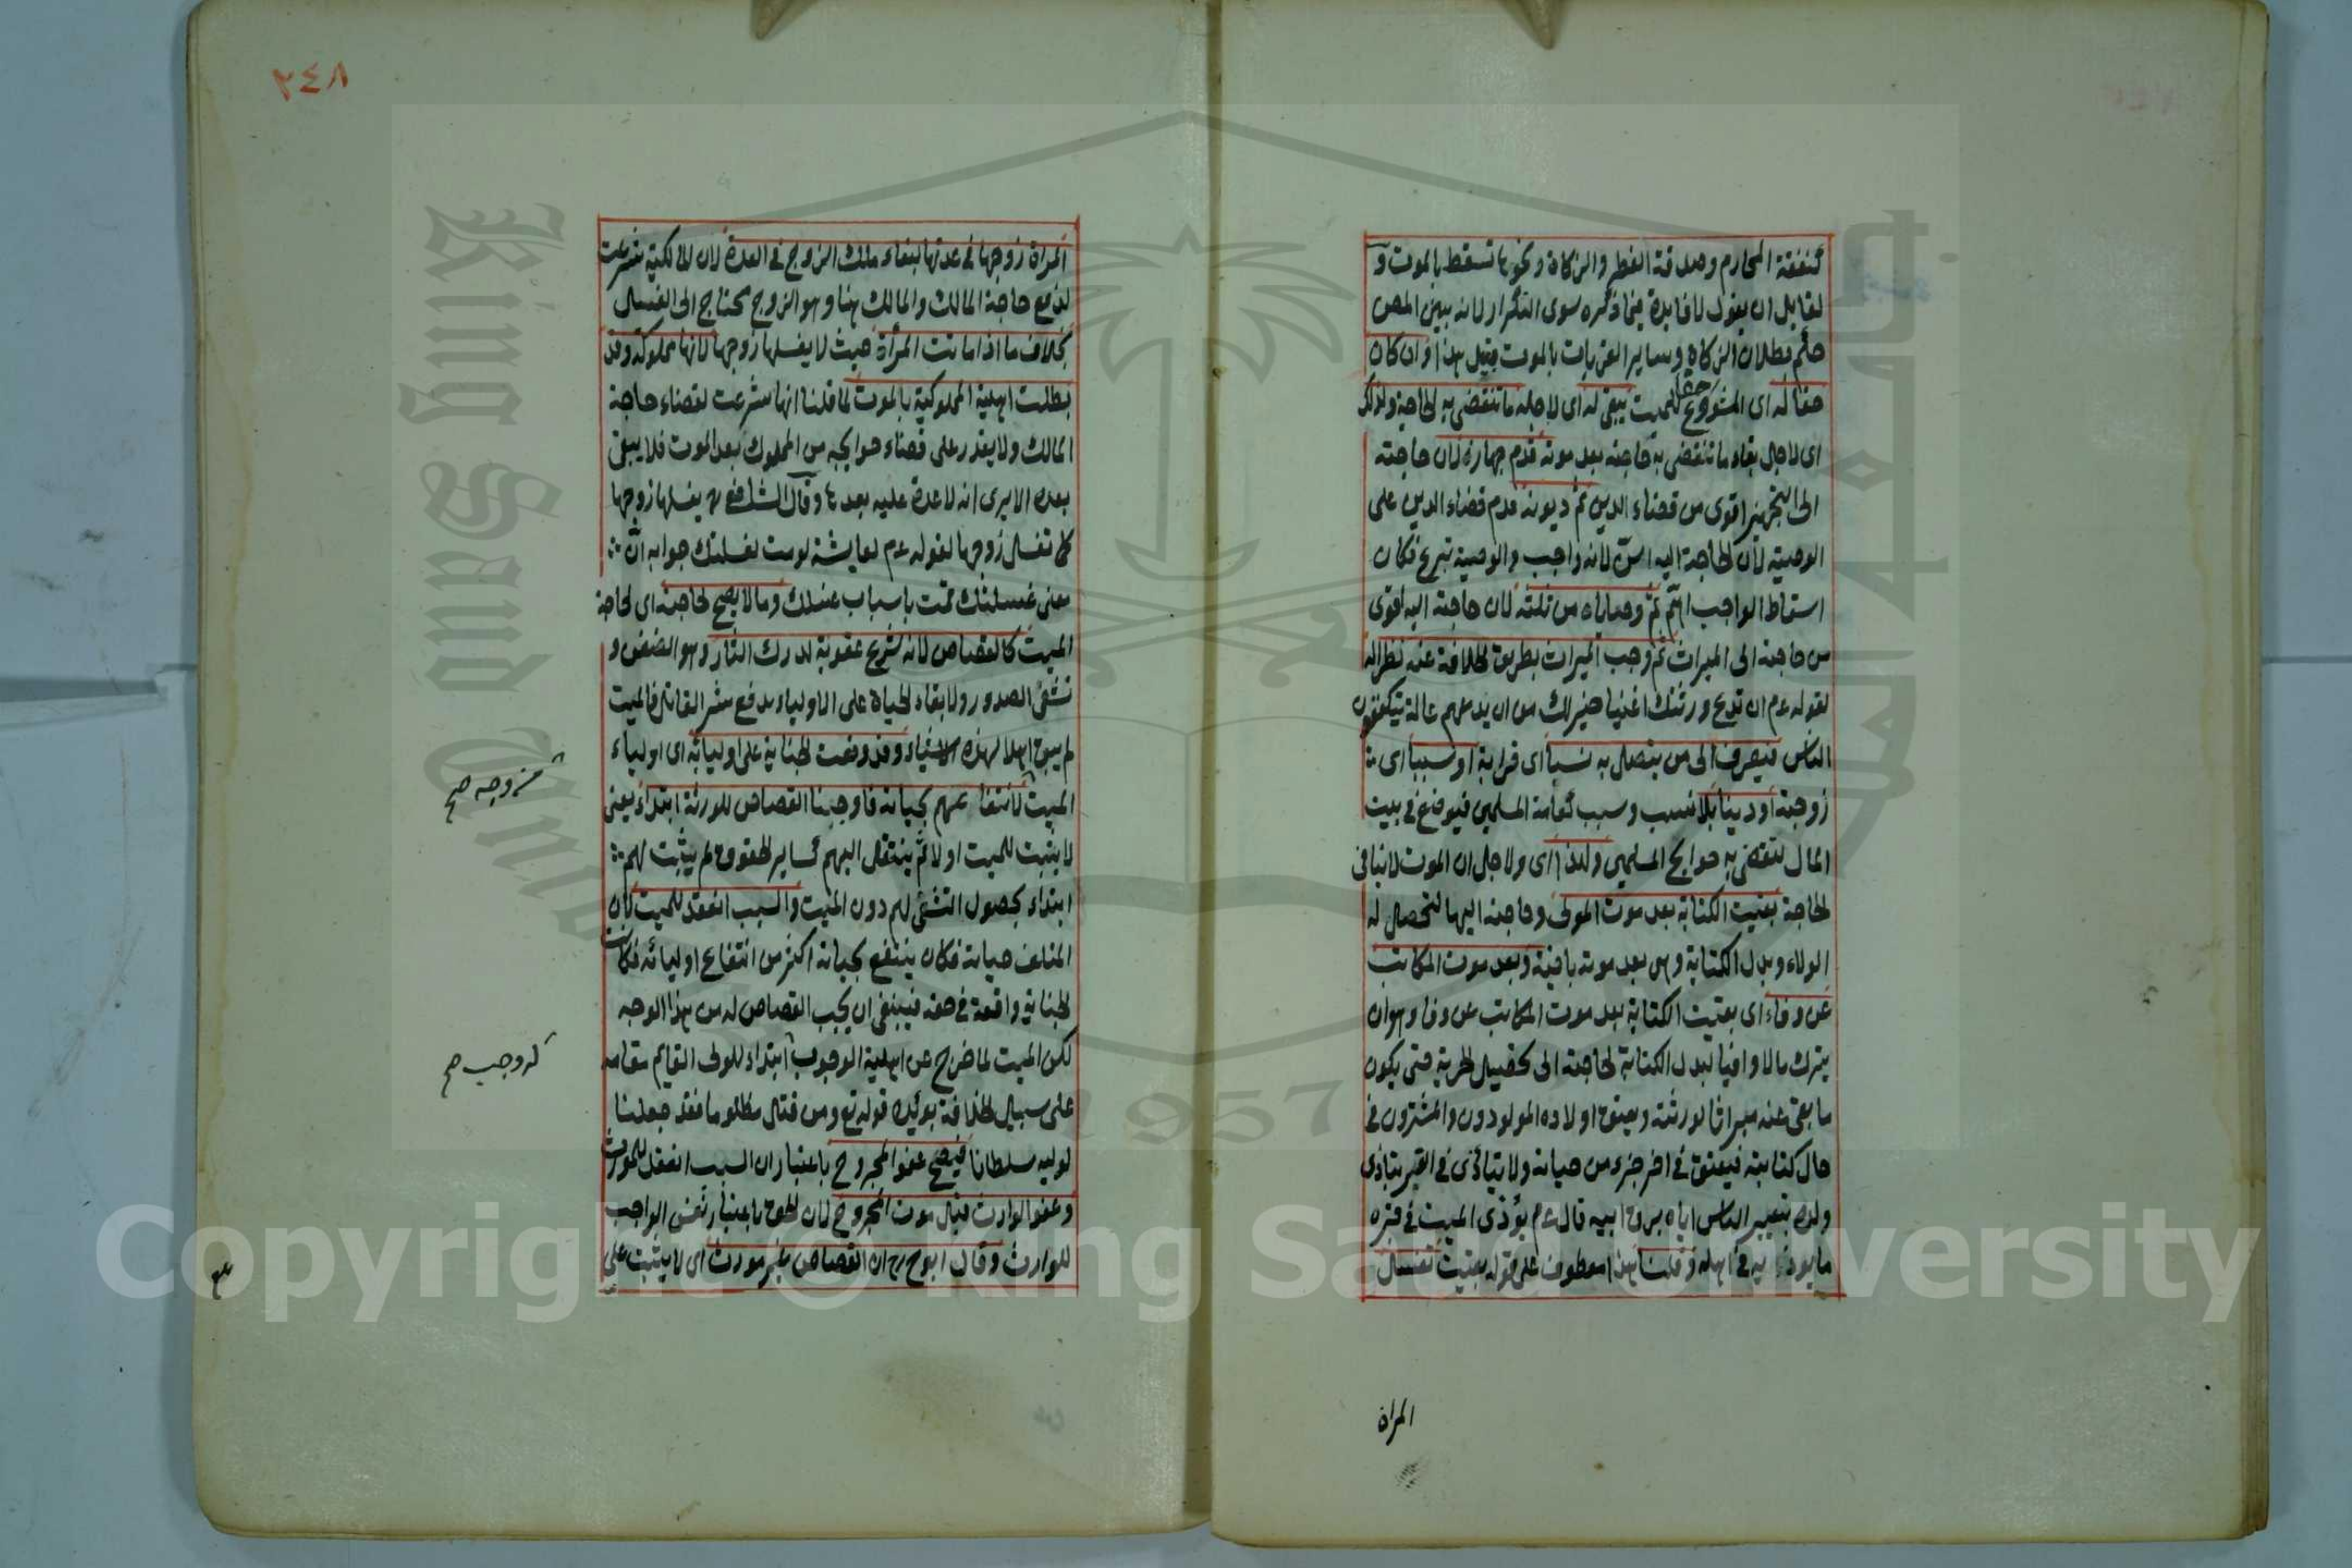 كنفقة المحارم وصدقة الفطر والزكاة ونحوها تسقط بالموت و
لقايل ان يقول لا فايدة فيما ذكره سوى التكرار لانه بين المص
حكم بطلان الزكاة وساير القربات بالموت قبيل هذا وان كان
حقا له اى المشروع حقا للميت يبقى له اى لاجله ما تنقضى به الحاجة ولذلك
اى لاجل بقاء ما تنقضى به حاجته بعد موته قدم جهازه لان حاجته
الى التجهيز اقوى من قضاء الدين ثم ديونه قدم قضاء الدين على
الوصية لان الحاجة اليه امس لانه واجب والوصية تبرع فكان
اسقاط الواجب اهم ثم وصاياه من ثلثه لان حاجته اليه اقوى
من حاجته الى الميراث ثم وجب الميراث بطريق الخلافة عنه نظرا له
لقوله عم ان تدع ورثتك اغنيا خير لك من ان يدعهم عالة يتكففون
الناس فيصرف الى من يتصل به نسبا اى قرابة او سببا اى
زوجية او دينا بلا نسب وسبب كعامة المسلمين فيوضع فى بيت
المال لتقضى به حوايج المسلمين ولهذا اى ولاجل ان الموت لا ينافى
الحاجة بقيت الكتابة بعد موت المولى وحاجته اليها لتحصل له
الولاء وبدل الكتابة وهى بعد موته باقية وبعد موت المكاتب
عن وفاء اى بقيت الكتابة بعد موت المكاتب عن وفا وهو ان
يترك مالا وافيا لبدل الكتابة لحاجته الى تحصيل الحرية حتى يكون
ما بقى عنه ميراثا لورثته ويعتق اولاده المولودون والمشترون فى
حال كتابته فيعتق فى اخر جزء من حياته ولا يتأذى فى القبر بتأذى
ولده بتعيير الناس اياه برق ابيه قال عم يؤذى الميت فى قبره
ما يوذيه فى اهله وقلنا هذا معطوف على قوله بقيت تغسل
المراة
٢٤٨
المراة زوجها فى عدتها لبقاء ملك الزوج فى العدة لان المالكية شرعت
لدفع حاجة المالك والمالك هنا وهو الزوج محتاج الى الغسل
بخلاف ما اذا ماتت المرأة حيث لا يغسلها زوجها لانها مملوكة وقد
بطلت اهلية المملوكية بالموت لما قلنا انها شرعت لقضاء حاجة
المالك ولا يقدر على قضاء حوايجه من المملوك بعد الموت فلا يبقى
بعده الا يرى انه لا عدة عليه بعدها وقال الشافعى يغسلها زوجها
كما تغسل زوجها لقوله عم لعايشة لو مت لغسلتك جوابه ان
معنى غسلتك قمت باسباب غسلك وما لا يصلح لحاجته اى لحاجة
الميت كالقصاص لانه شرع عقوبة لدرك الثار وهو الضغن و
تشفى الصدور ولابقاء الحياة على الاولياء بدفع شر القاتل فالميت
لم يبق اهلا لهذه الاشياء وقد وقعت الجناية على اوليائه اى اولياء
الميت لانتفاعهم بحياته فاوجبنا القصاص للورثة ابتداء يعنى
لا يثبت للميت اولا ثم ينتقل اليهم كساير الحقوق لم يثبت لهم
ابتداء بحصول التشفى لهم دون الميت والسبب انعقد للميت لان
المتلف حياته فكان ينتفع بحياته اكثر من انتفاع اوليائه فكانت
الجناية واقعة فى حقه فينبغى ان يجب القصاص له من هذا الوجه
لكن الميت لما خرج عن اهلية الوجوب ابتداء للولى القايم مقامه
على سبيل الخلافة يؤيده قوله تع ومن قتل مظلوما فقد جعلنا
لوليه سلطانا فيصح عفو المجروح باعتبار ان السبب انعقد للمورث
وعفو الوارث قبل موت المجروح لان الحق باعتبار نفس الواجب
للوارث وقال ابو ح رح ان القصاص غير مورث اى لا يثبت على
له وجب صح